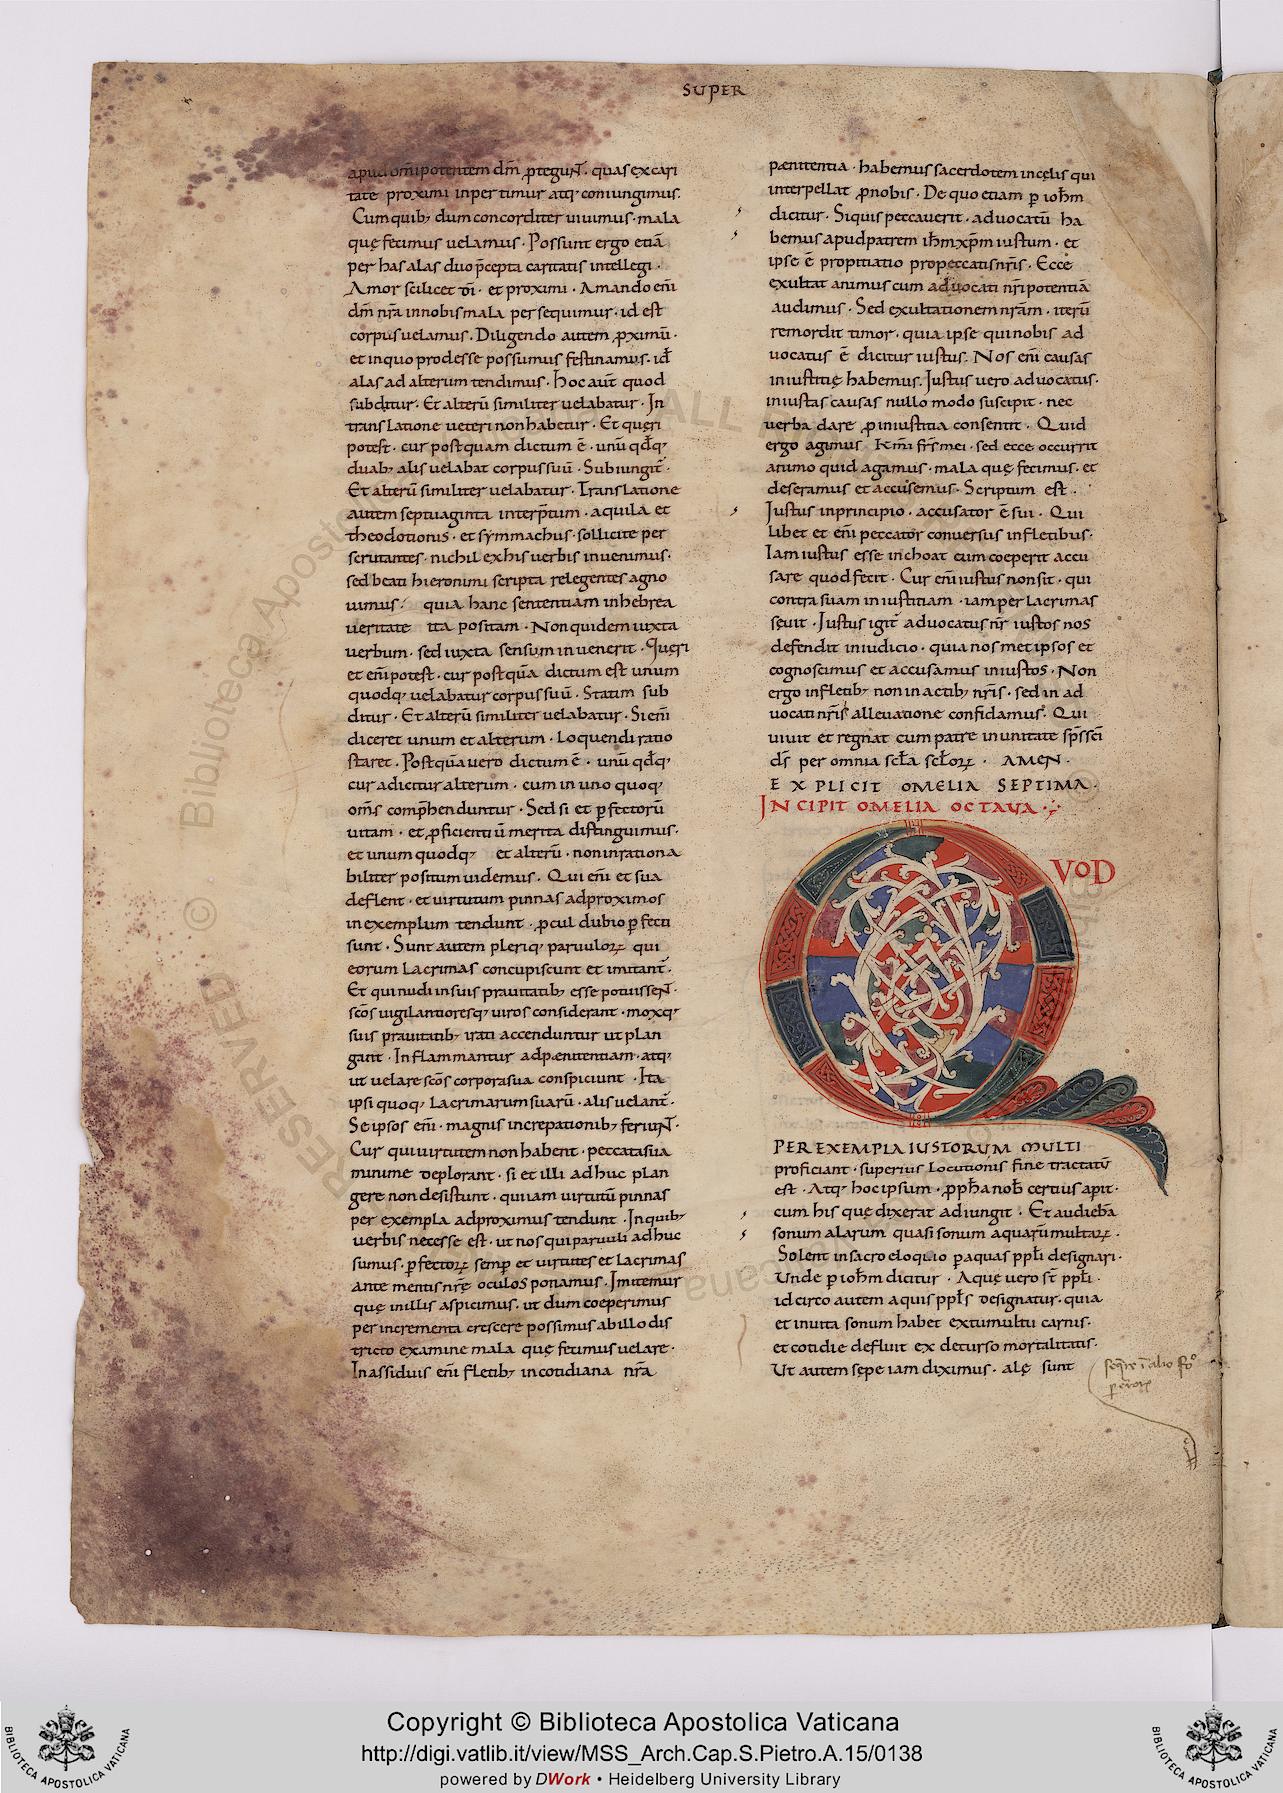 SUPER
apud om̅ipotentem dm̅ ꝓtegunt. quas ex cari
tate proximi inpertimur atq; coniungimus.
Cum quib; dum concorditer uiuimus. mala
quę fecimus uelamus. Possunt ergo etiā
per has alas duo p̄cepta caritatis intellegi.
Amor scilicet di̅. et proximi. Amando eni̅
dm̅ nr̅a in nobis mala persequimur. id est
corpus uelamus. Diligendo autem ꝓximū.
et in quo prodesse possumus festinamus. id ē
alas ad alterum tendimus. Hoc aut̅ quod
subditur. Et alterū similiter uelabatur. In
translatione ueteri non habetur. Et queri
potest. cur postquam dictum ē. unū qd̅q;
duab; alis uelabat corpus suū. Subiungit̅.
Et alterū similiter uelabatur. Translatione
autem septuaginta interp̄tum. aquila et
theodotionis. et symmachus. sollicite per
scrutantes. nichil ex his uerbis inuenimus.
sed beati hieronimi scripta relegentes agno
uimus. quia hanc sententiam in hebrea
ueritate ita positam. Non quidem iuxta
uerbum. sed iuxta sensum inuenerit. Queri
et eni̅ potest. cur postquā dictum est unum
quodq; uelabatur corpus suū. Statim sub
ditur. Et alterū similiter uelabatur. Si eni̅
diceret unum et alterum. loquendi ratio
staret. Postquā uero dictum ē. unū qd̅q;
cur adicitur alterum. cum in uno quoq;
om̅s comp̄henduntur. Sed si et ꝑfectorū
uitam. et ꝓficientiū merita distinguimus.
et unum quodq; et alterū. non inrationa
biliter positum uidemus. Qui eni̅ et sua
deflent. et uirtutum pinnas ad proximos
in exemplum tendunt. ꝓcul dubio ꝑfecti
sunt. Sunt autem pleriq; paruuloꝝ qui
eorum lacrimas concupiscunt et imitant̅.
Et qui nudi in suis prauitatib; esse potuissent.
sc̅os uigilantioresq; uiros considerant. moxq;
suis prauitatib; irati accenduntur ut plan
gant. Inflammantur ad pęnitentiam. atq;
ut uelare sc̅os corpora sua conspiciunt. Ita
ipsi quoq; lacrimarum suarū. alis uelant̅.
Se ipsos eni̅. magnis increpationib; feriunt.
Cur qui uirtutem non habent. peccata sua
minime deplorant. si et illi adhuc plan
gere non desistunt. qui iam uirtutū pinnas
per exempla ad proximus tendunt. In quib;
uerbis necesse est. ut nos qui paruuli adhuc
sumus. ꝑfectoꝝ semꝑ et uirtutes et lacrimas
ante mentis nr̅ę oculos ponamus. Imitemur
quę in illis aspicimus. ut dum coeperimus
per incrementa crescere possimus ab illo dis
tricto examine mala quę fecimus uelare.
In assiduis eni̅ fletib; in cotidiana nr̅a
pænitentia. habemus sacerdotem in cęlis qui
interpellat ꝓ nobis. De quo etiam ꝑ ioh̅m
dicitur. Siquis peccauerit. aduocatū ha
bemus apud patrem ih̅m xp̅m iustum. et
ipse ē propitiatio pro peccatis nr̅is. Ecce
exultat animus cum aduocati nr̅i potentiā
audimus. Sed exultationem nr̅am. iterū
remordit timor. quia ipse qui nobis ad
uocatus ē dicitur iustus. Nos eni̅ causas
iniustitię habemus. Iustus uero aduocatus.
iniustas causas nullo modo suscipit. nec
uerba dare ꝓ iniustitia consentit. Quid
ergo agimus k̅mi fr̅s mei. sed ecce occurrit
animo quid agamus. mala quę fecimus. et
deseramus et accusemus. Scriptum est.
Iustus in principio. accusator ē sui. Qui
libet et eni̅ peccator conuersus in fletibus.
Iam iustus esse inchoat cum coeperit accu
sare quod fecit. Cur eni̅ iustus non sit. qui
contra suam iniustitiam. iam per lacrimas
seuit. Iustus igit̅ aduocatus nr̅ iustos nos
defendit in iudicio. quia nosmet ipsos et
cognoscimus et accusamus iniustos. Non
ergo in fletib; non in actib; nr̅is. sed in ad
uocati nr̅is alleuatione confidamus. Qui
uiuit et regnat cum patre in unitate sp̅s sc̅i
ds̅ per omnia sc̅la sc̅loꝝ. AMEN.
EXPLICIT OMELIA SEPTIMA.
INCIPIT OMELIA OCTAVA.
QVOD
PER EXEMPLA IUSTORUM MULTI
proficiant. superius locutionis fine tractatū
est. Atq; hoc ipsum. ꝓph̅a nob̅ certius apit.
cum his quę dixerat adiungit. Et audiebā
sonum alarum quasi sonum aquarū multaꝝ.
Solent in sacro eloquio ꝑ aquas ppl̅i designari.
Unde ꝑ ioh̅m dicitur. Aquę uero st̅ ppl̅i.
idcirco autem aquis ppl̅s designatur. quia
et in uita sonum habet ex tumultu carnis.
et cotidie defluit ex decurso mortalitatis.
Ut autem sepe iam diximus. alę sunt
Copyright © Biblioteca Apostolica Vaticana
http://digi.vatlib.it/view/MSS_Arch.Cap.S.Pietro.A.15/0138
powered by DWork • Heidelberg University Library
BIBLIOTECA APOSTOLICA VATICANA
BIBLIOTECA APOSTOLICA VATICANA